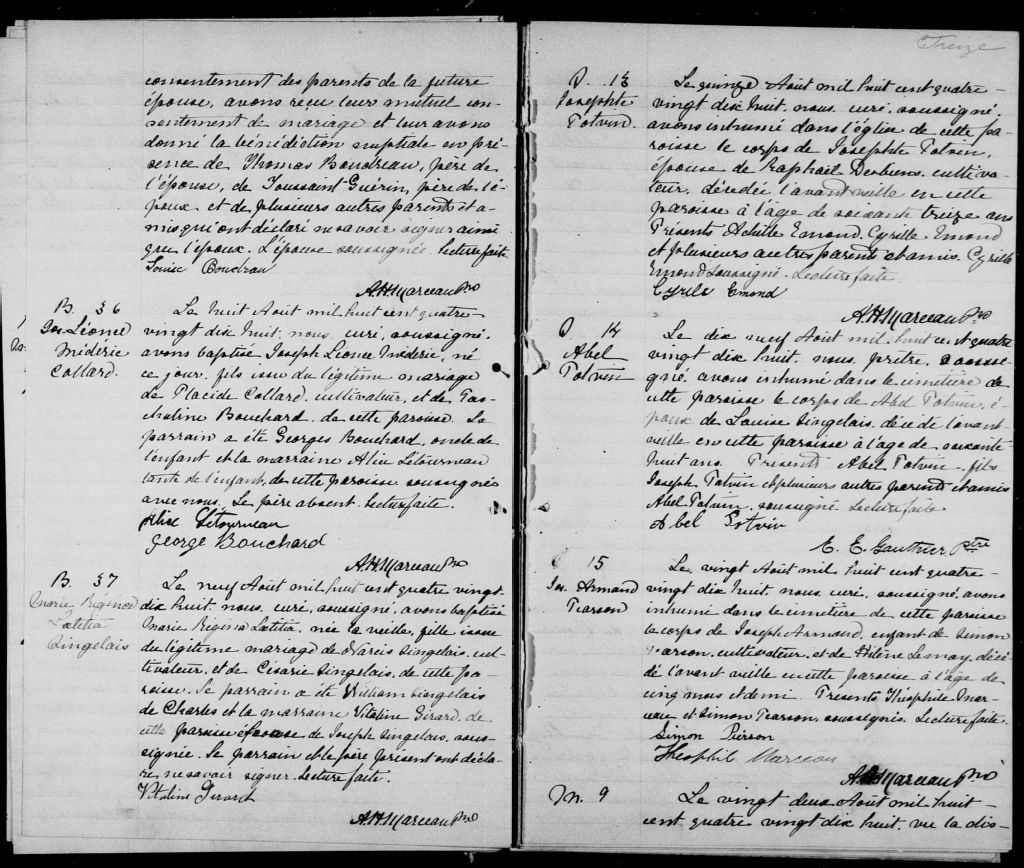 consentement des parents de la future
épouse, avons reçu leur mutuel con-
sentement de mariage et leur avons
donné la bénédiction nuptiale en pré-
sence de Thomas Boudreau, père de
l'épouse, de Toussaint Guérin, père de l'é-
poux et de plusieurs autres parents et a-
mis qui ont déclaré ne savoir signer ainsi
que l'époux. L'épouse soussignée. Lecture faite
Louise Boudreau
A.H. Marceau Ptre
B. 36
Jos. Léonce
Médéric
Collard.
Le huit Août mil huit cent quatre
vingt dix huit, nous, curé, soussigné,
avons baptisé Joseph Léonce Médéric, né
ce jour, fils issu du légitime mariage
de Placide Collard, cultivateur, et de Pas-
chaline Bouchard, de cette paroisse. Le
parrain a été Georges Bouchard, oncle de
l'enfant et la marraine Alice Létourneau
tante de l'enfant, de cette paroisse soussignés
avec nous. Le père absent. Lecture faite.
Alice Létourneau
George Bouchard
A.H. Marceau Ptre
B. 37
Marie Régina
Lætitia
Singelais
Le neuf Août mil huit cent quatre vingt
dix huit, nous, curé, soussigné, avons baptisé
Marie Régina Lætitia, née la veille, fille issue
du légitime mariage de Narcis Singelais, cul-
tivateur, et de Césarie Singelais, de cette pa-
roisse. Le parrain a été William Singelais
de Charles et la marraine Vitaline Girard, de
cette paroisse épouse de Joseph Singelais, sous-
signée. Le parrain et le père présent ont décla-
ré, ne savoir signer. Lecture faite.
Vitaline Girard
A.H. Marceau Ptre
Treize
S. 13
Josephte
Potvin.
Le quinze Août mil huit cent quatre-
vingt dix huit, nous, curé, soussigné,
avons inhumé dans l'église de cette pa-
roisse le corps de Josephte Potvin,
épouse de Raphaël Desbiens, cultiva-
teur, décédée l'avant veille en cette
paroisse à l'âge de soixante treize ans
Présents Achille Emond, Cyrille Emond
et plusieurs autres parents et amis. Cyrille
Emond soussigné. Lecture faite
Cyrile Emond
A.H. Marceau Ptre
S. 14
Abel
Potvin
Le dix neuf Août mil huit cent quatre
vingt dix huit, nous, prêtre, soussi-
gné, avons inhumé dans le cimetière de
cette paroisse le corps de Abel Potvin, é-
poux de Louise Singelais, décédé l'avant
veille en cette paroisse à l'age de soixante
huit ans. Présents Abel Potvin fils
Joseph Potvin et plusieurs autres parents et amis
Abel Potvin, soussigné. Lecture faite
Abel Potvin
E. E. Gauthier Ptre
S 15
Jos. Armand
Pearson
Le vingt Août mil huit cent quatre-
vingt dix huit, nous, curé, soussigné, avons
inhumé dans le cimetière de cette paroisse
le corps de Joseph Armand, enfant de Simon
Pearson, cultivateur, et de Hélène Lemay, décé-
dé l'avant veille en cette paroisse à l'âge de
cinq mois et demi. Présents Théophile Mar-
ceau et Simon Pearson, soussignés. Lecture faite.
Simon Pierson
Theophil Marceau
A.H. Marceau Ptre
M. 9
Le vingt deux Août mil huit
cent quatre vingt dix huit, vu la dis-